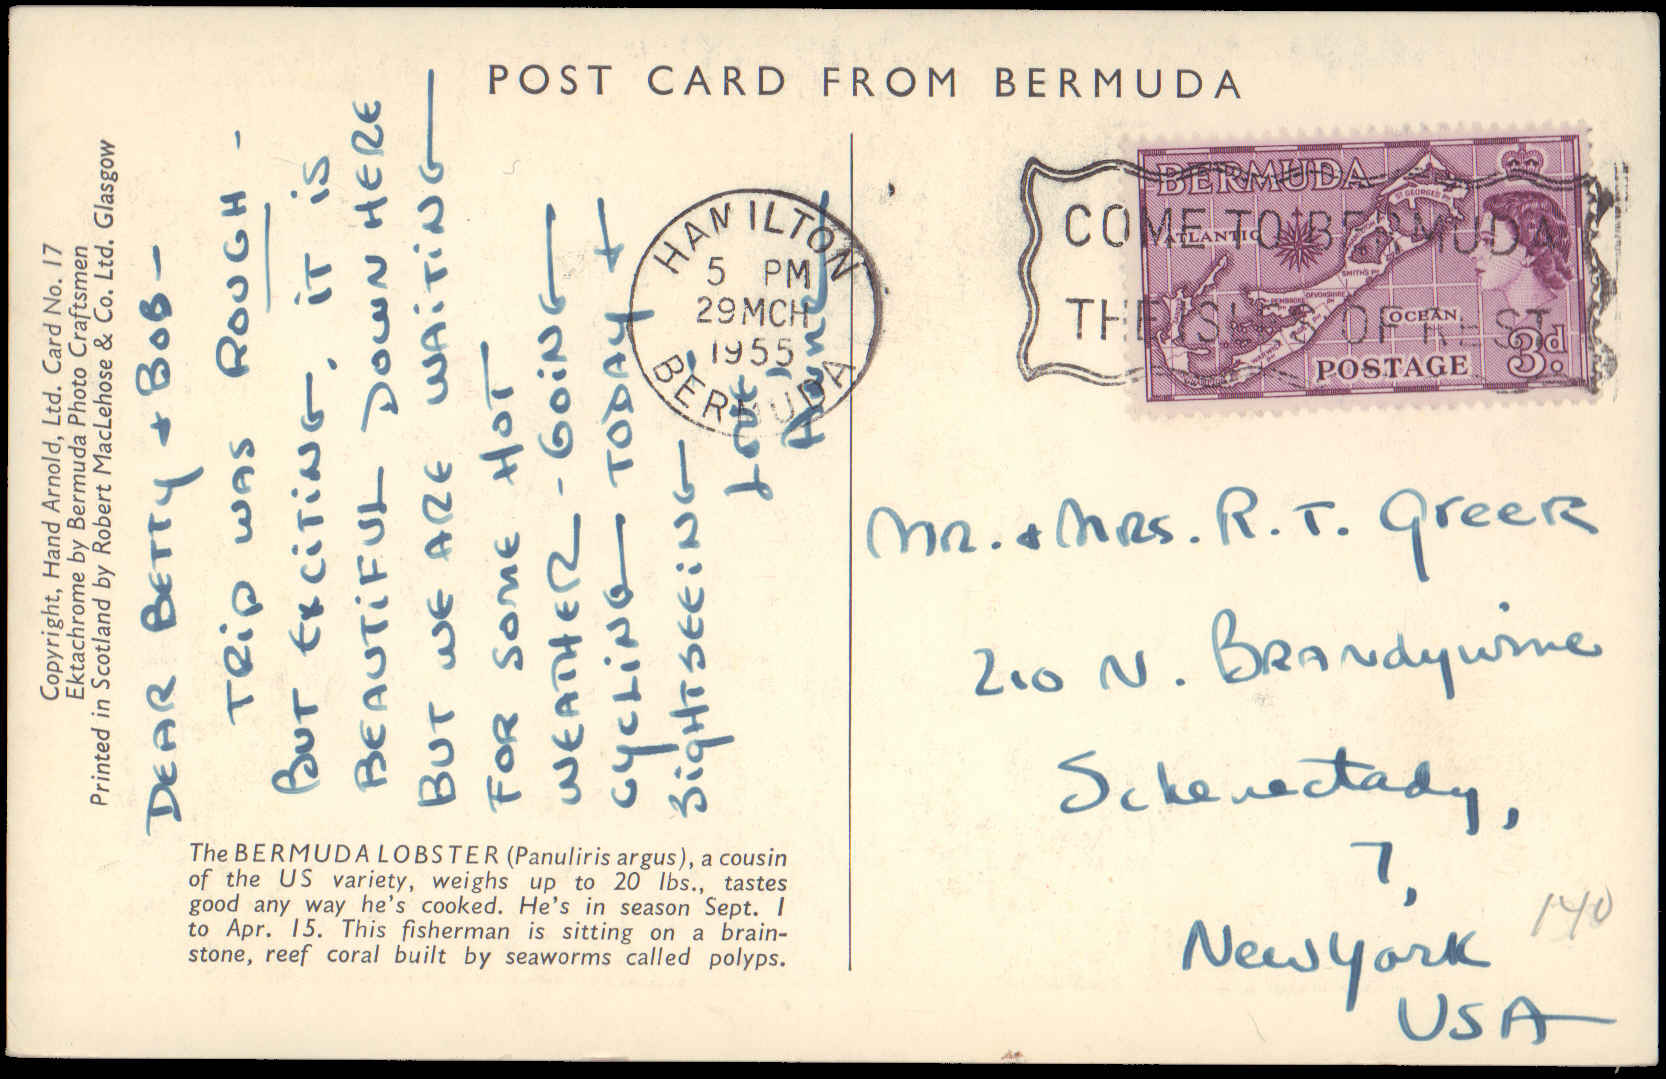 POST CARD FROM BERMUDA
Copyright, Hand Arnold, Ltd. Card No. 17
Ektachrome by Bermuda Photo Craftsmen
Printed in Scotland by Robert MacLehose & Co. Ltd. Glasgow
DEAR BETTY + BOB –
TRIP WAS ROUGH -
BUT EXCITING. IT IS
BEAUTIFUL DOWN HERE
BUT WE ARE WAITING
FOR SOME HOT
WEATHER - GOING
CYCLING TODAY +
SIGHTSEEING
LOVE,
The BERMUDA LOBSTER (Panuliris argus), a cousin
of the US variety, weighs up to 20 lbs., tastes
good any way he's cooked. He's in season Sept. 1
to Apr. 15. This fisherman is sitting on a brain-
stone, reef coral built by seaworms called polyps.
HAMILTON
5 PM
29 MCH
1955
BERMUDA
COME TO BERMUDA
THE ISLES OF REST
BERMUDA
ATLANTIC
ST GEORGES
SMITHS
DEVONSHIRE
PEMBROKE
WARWICK
OCEAN
POSTAGE
3d.
MR. + MRS. R. T. Greer
210 N. BRANdywine
Schenectady,
7,
New York
USA
140